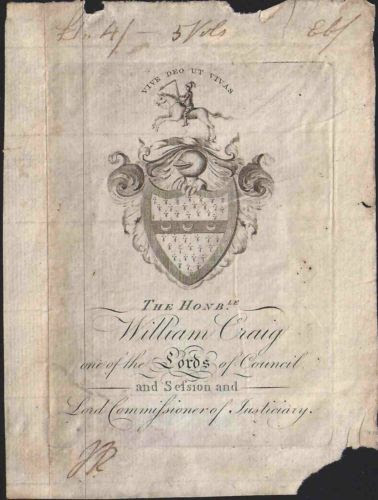 4/- 5 Vols
VIVE DEO UT VIVAS
THE HONB.LE
William Craig
one of the Lords of Council
and Seſsion and
Lord Commiſsioner of Justiciary.